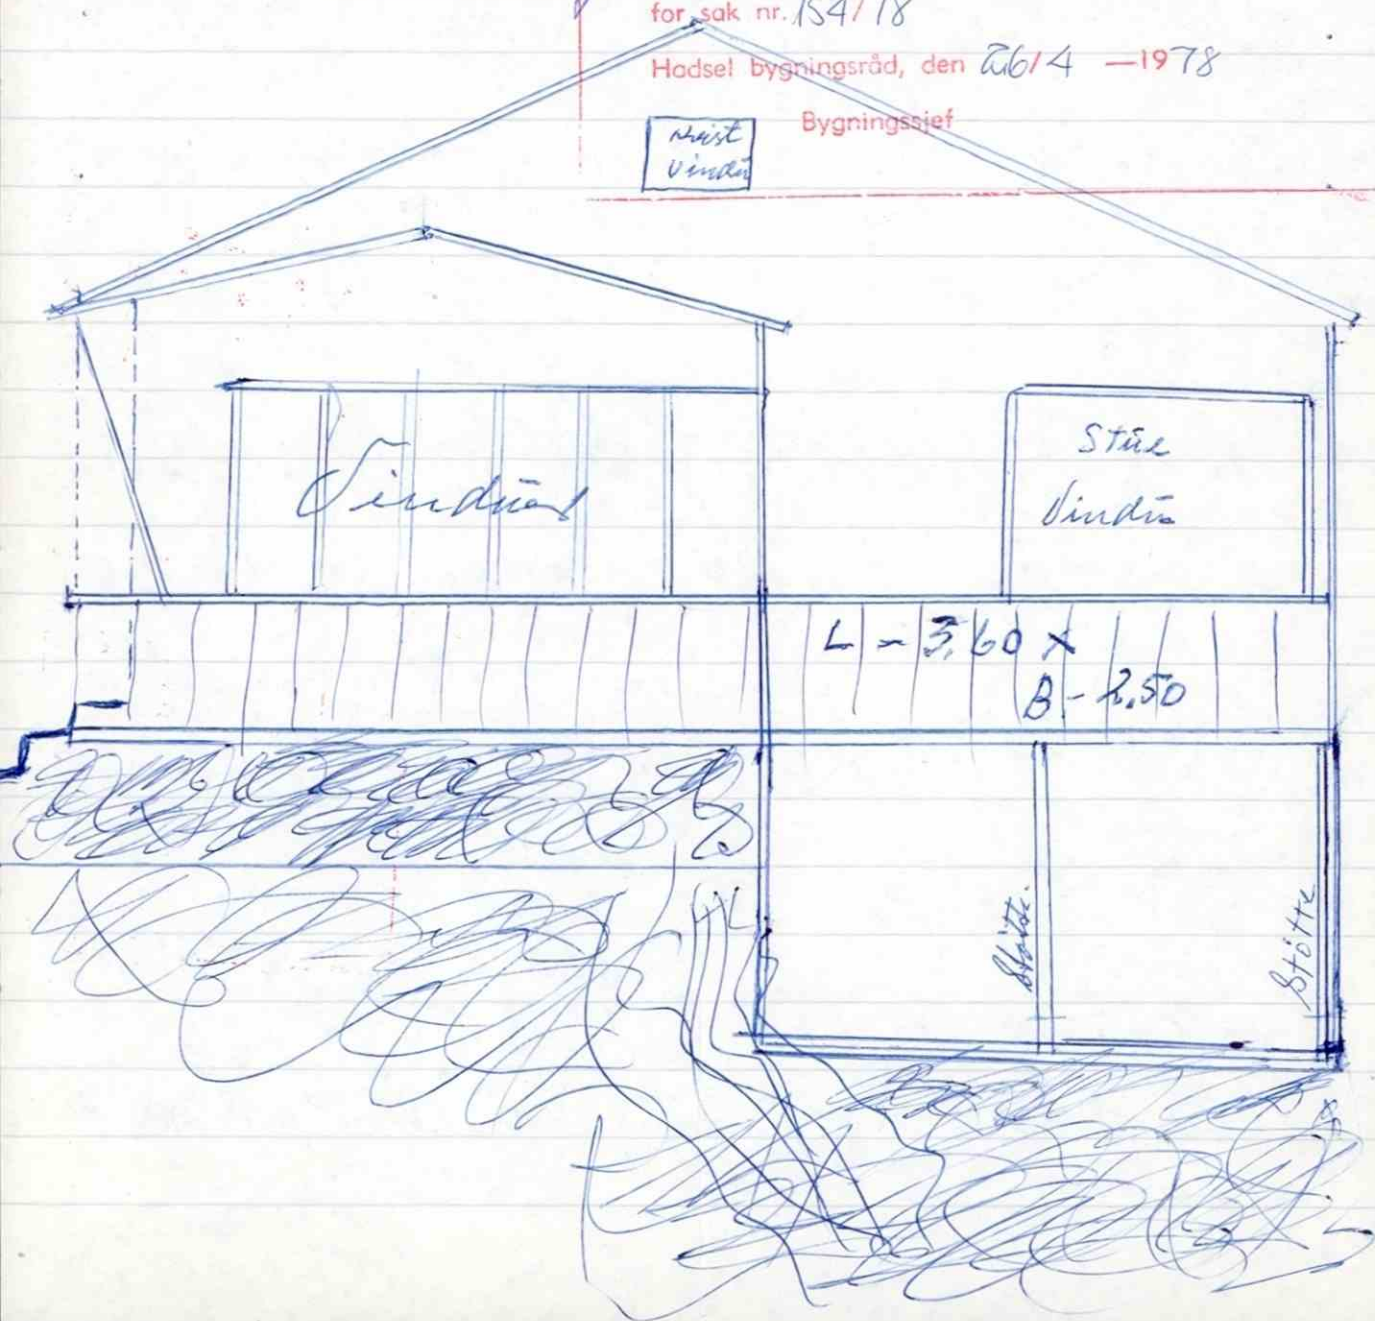 for sak nr. 154/78
Hadsel bygningsråd, den 26/4 —1978
Bygningssjef
Vindu
Stue
Vindu
Vinduer
L - 3,60 x
B - 2,50
Støtte
Støtte